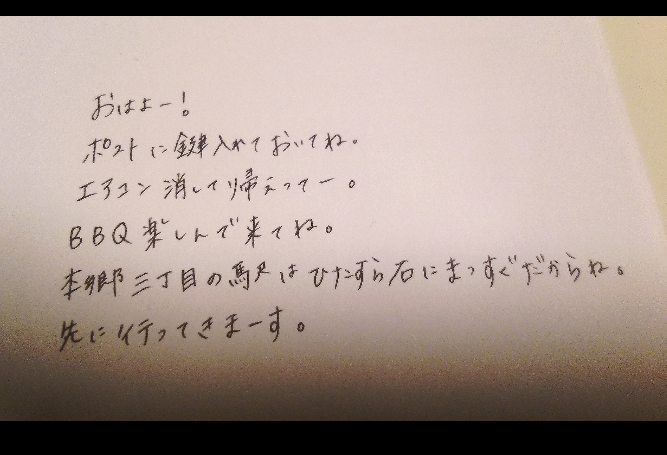 おはよー!
ポストに鍵入れておいてね。
エアコン消して帰ってー。
BBQ楽しんで来てね。
本郷三丁目の駅はひたすら右にまっすぐだからね。
先に行ってきまーす。